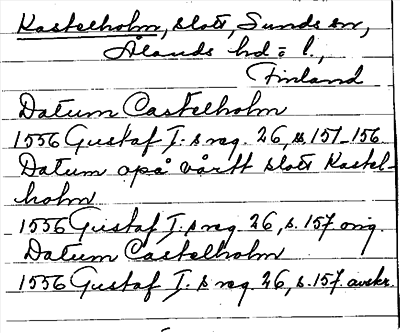 Kastelholm, slott, Sunds sn,
Ålands hd = l.,
Finland
Datum Castelholm
1556 Gustaf I:s reg. 26, s. 151-156
Datum opå vårtt slott Kastel-
holm
1556 Gustaf I:s reg. 26, s. 157 orig.
Datum Castelholm
1556 Gustaf I:s reg. 26, s. 157. avskr.